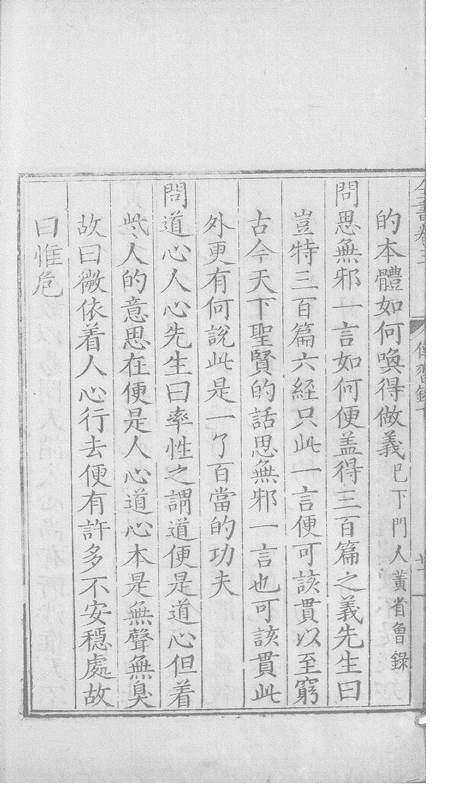 的本體如何喚得做義已下門人黃省曾錄
問思無邪一言如何便盖得三百篇之義先生曰
豈特三百篇六經只此一言便可該貫以至窮
古今天下聖賢的話思無邪一言也可該貫此
外更有何說此是一了百當的功夫
問道心人心先生曰率性之謂道便是道心但着
些人的意思在便是人心道心本是無聲無臭
故曰微依着人心行去便有許多不安穩處故
曰惟危